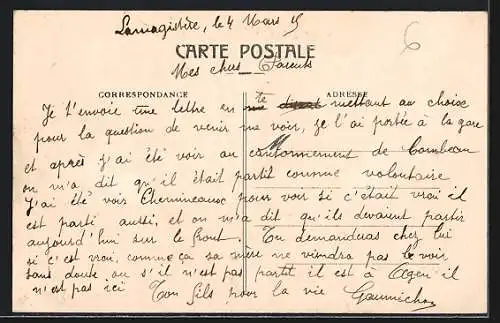 Lamagistère, le 4 Mars 15
6
CARTE POSTALE
Mes chers Parents
CORRESPONDANCE
ADRESSE
Je t'envoie une lettre en te mettant au choix
pour la question de venir me voir, je l'ai portée à la gare
et après j'ai été voir au cantonnement de Combeau
on m'a dit qu'il était partit comme volontaire
J'ai été voir Chemineaux pour voir si c'était vrai il
est parti aussi, et on m'a dit qu'ils devaient partir
aujourd'hui sur le front. Tu demanderas chez lui
si c'est vrai, comme ça sa mère ne viendra pas le voir
sans doute ou s'il n'est pas partit il est à Agen il
n'est pas ici Ton fils pour la vie